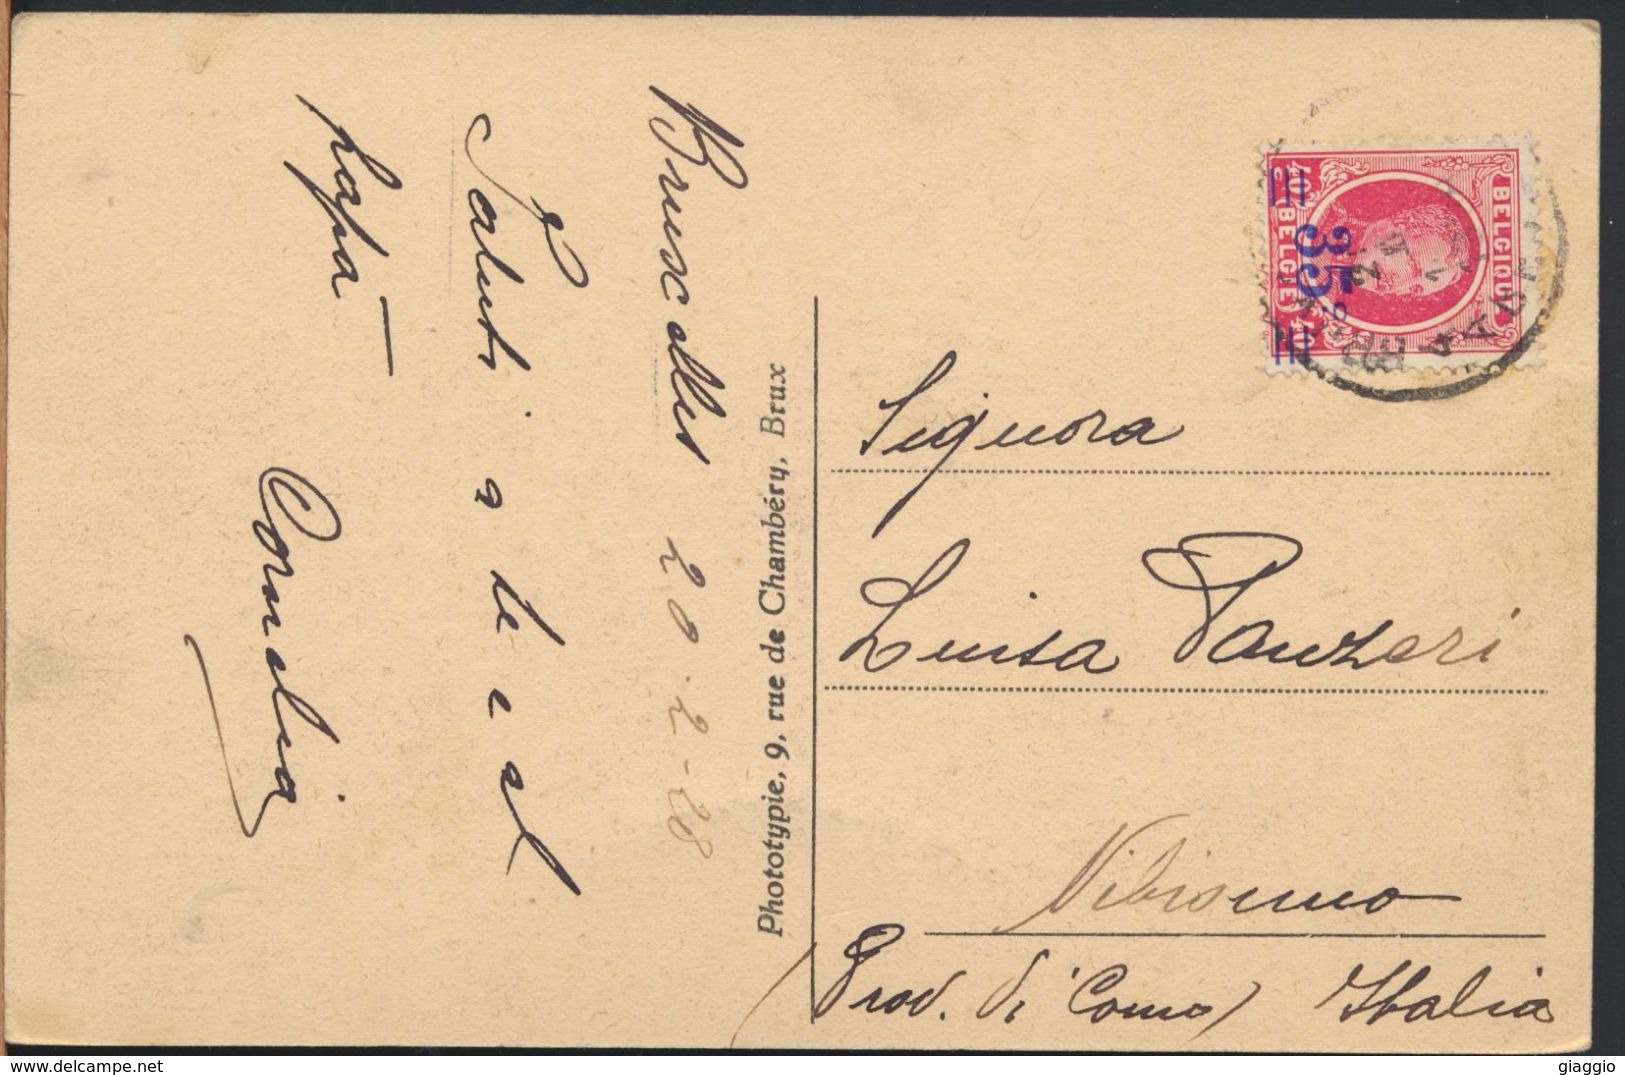 Bruxelles 20.2-28
Saluti a te e al
papà —
Amalia
Phototypie, 9, rue de Chambéry, Brux
BELGIQUE
BELGE
40 40
35 c
Signora
Luisa Panzeri
Nibionno
(Prov. di Como) Italia
giaggio